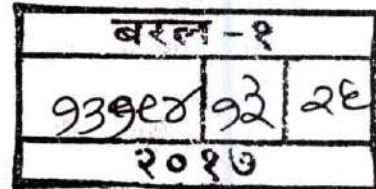 बरल - १
१३१९४ १३ २६
२०१७